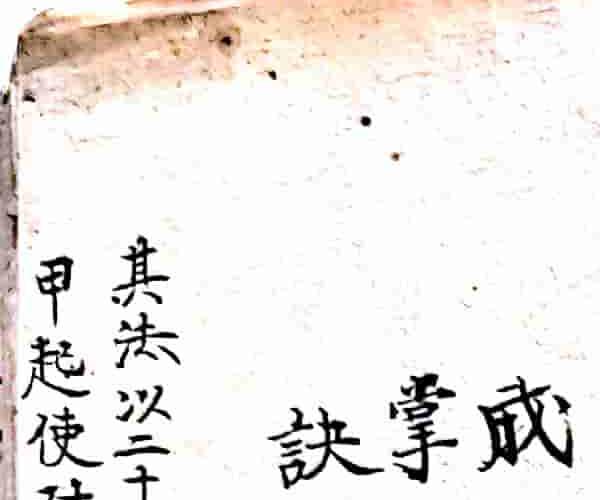 掌訣
其法以二十
甲起使